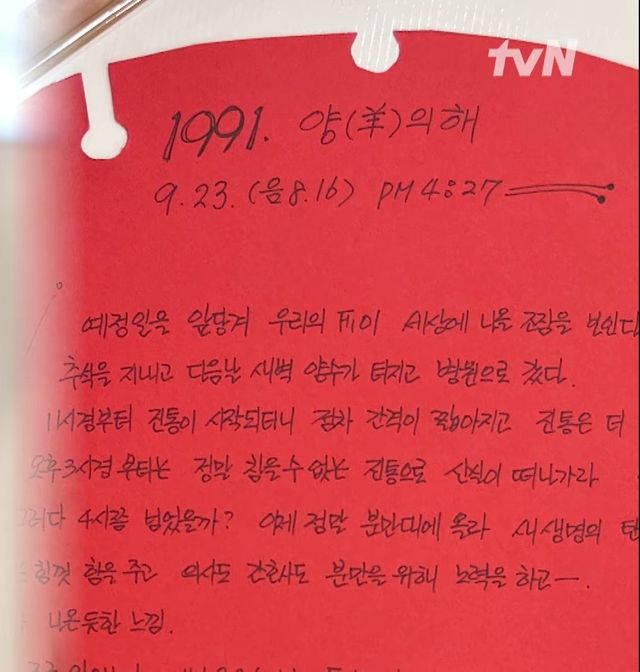 tvN
1991. 양(羊)의해
9.23.(음8.16) PM 4:27
예정일을 앞당겨 우리의 FI이 세상에 나올 조짐을 보인다
추석을 지내고 다음날 새벽 양수가 터지고 병원으로 갔다.
11시경부터 진통이 시작되더니 점차 간격이 짧아지고 진통은 더
오후3시경 부터는 정말 참을수 없는 진통으로 신음이 떠나가라
그러다 4시쯤 넘었을까? 이제 정말 분만대에 올라 새생명의 탄
힘껏 힘을 주고 의사도 간호사도 분만을 위해 노력을 하고―.
나온듯한 느낌.